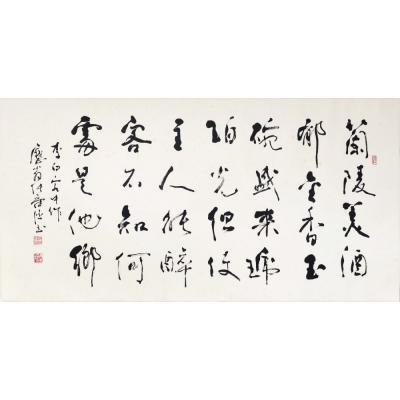 蘭陵美酒
郁金香玉
碗盛来琥
珀光但使
主人能醉
客不知何
處是他鄉
李白客中作